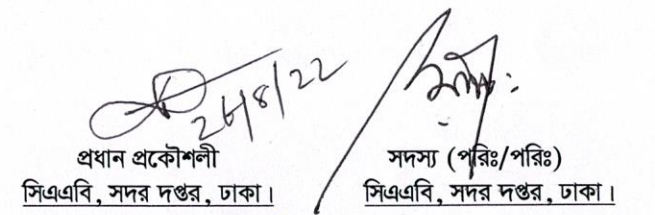 প্রধান প্রকৌশলী
সিএএবি, সদর দপ্তর, ঢাকা।
সদস্য (পরিঃ/পরিঃ)
সিএএবি, সদর দপ্তর, ঢাকা।